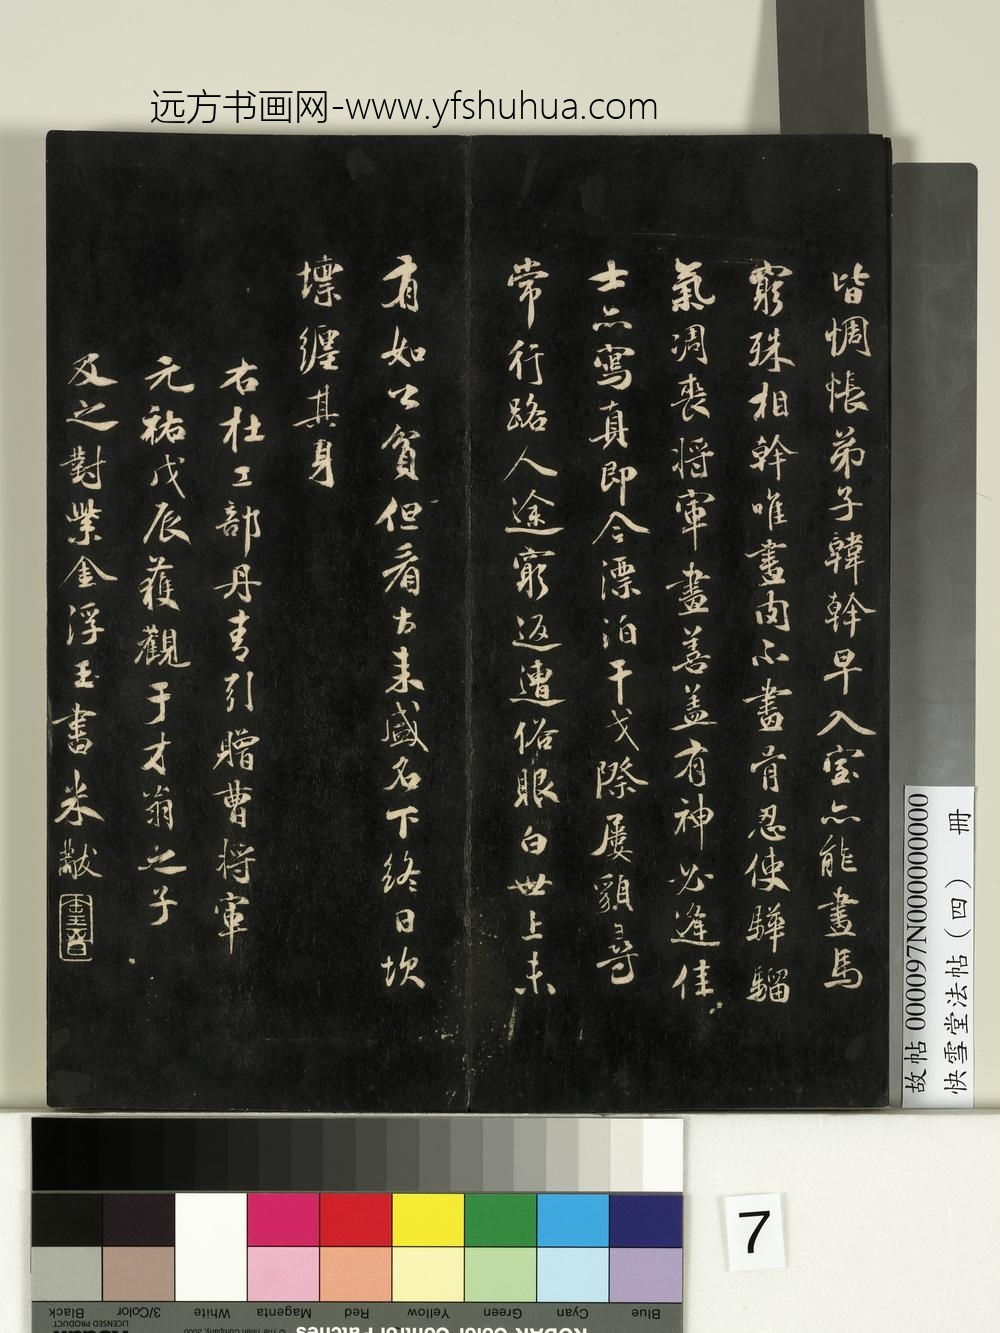 远方书画网-www.yfshuhua.com
皆惆悵弟子韓幹早入室亦能畫馬
窮殊相幹唯畫肉不畫骨忍使驊騮
氣凋喪將軍畫善蓋有神必逢佳
士亦寫真即今漂泊干戈際屢貌尋
常行路人途窮返遭俗眼白世上未
有如公貧但看古来盛名下終日坎
壈纏其身
右杜工部丹青引贈曹將軍
元祐戊辰獲觀于才翁之子
及之對紫金浮玉書米黻
故帖000097N000000000
快雪堂法帖（四） 冊
7
Black
3/Color
White
Magenta
Red
Yellow
Green
Cyan
Blue
KODAK Color Control Patches
© The Tiffen Company, 2000
LICENSED PRODUCT